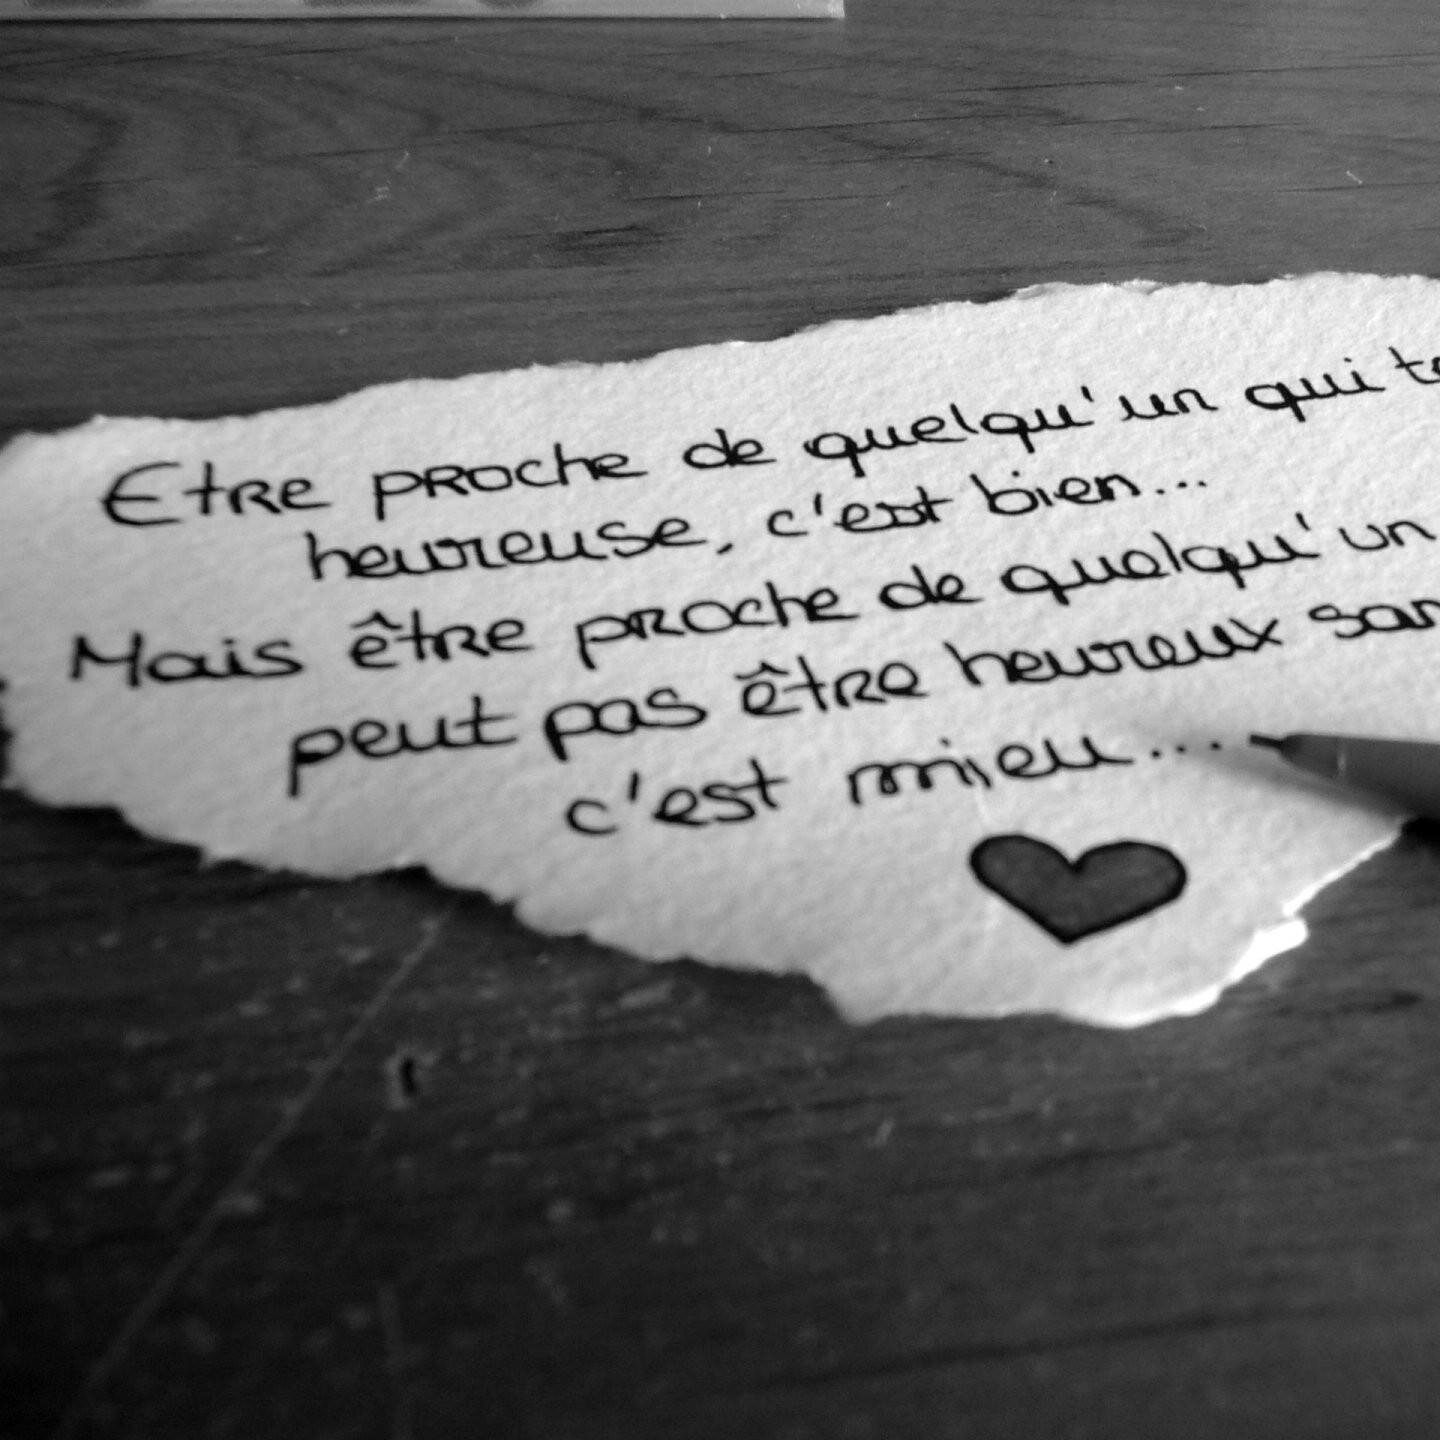 Etre proche de quelqu'un qui
heureuse, c'est bien...
Mais être proche de quelqu'un
peut pas être heureux
c'est mieu....